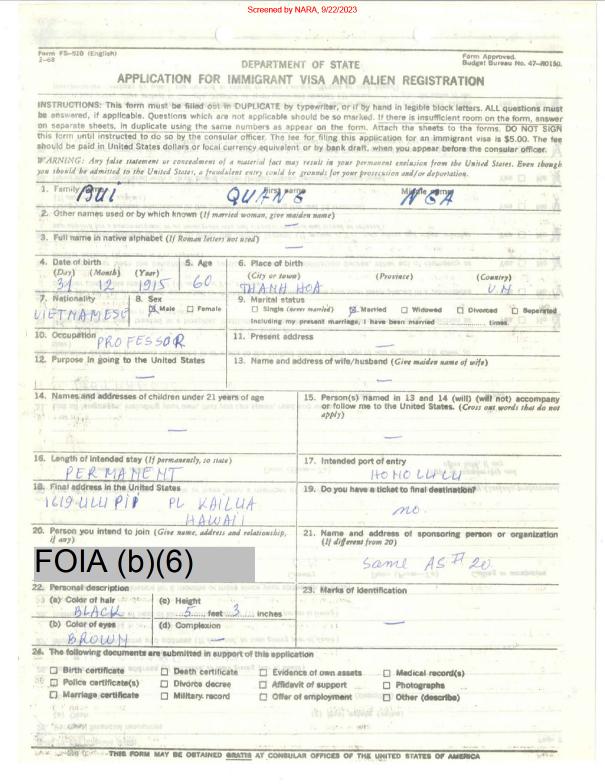 Screened by NARA, 9/22/2023
Form FS-510 (English)
2-68
Form Approved.
Budget Bureau No. 47-R0150.
DEPARTMENT OF STATE
APPLICATION FOR IMMIGRANT VISA AND ALIEN REGISTRATION
INSTRUCTIONS: This form must be filled out in DUPLICATE by typewriter, or if by hand in legible block letters. ALL questions must
be answered, if applicable. Questions which are not applicable should be so marked. If there is insufficient room on the form, answer
on separate sheets, in duplicate using the same numbers as appear on the form. Attach the sheets to the forms. DO NOT SIGN
this form until instructed to do so by the consular officer. The fee for filing this application for an immigrant visa is $5.00. The fee
should be paid in United States dollars or local currency equivalent or by bank draft, when you appear before the consular officer.
WARNING: Any false statement or concealment of a material fact may result in your permanent exclusion from the United States. Even though
you should be admitted to the United States, a fraudulent entry could be grounds for your prosecution and/or deportation.
1. Family name First name Middle name
BUI QUANG NGA
2. Other names used or by which known (If married woman, give maiden name)
—
3. Full name in native alphabet (If Roman letters not used)
—
4. Date of birth 5. Age 6. Place of birth
(Day) (Month) (Year) (City or town) (Province) (Country)
31 12 1915 60 THANH HOA VN
7. Nationality 8. Sex 9. Marital status
VIETNAMESE ☒ Male ☐ Female ☐ Single (never married) ☒ Married ☐ Widowed ☐ Divorced ☐ Separated
Including my present marriage, I have been married ............ times.
10. Occupation PROFESSOR 11. Present address
—
12. Purpose in going to the United States 13. Name and address of wife/husband (Give maiden name of wife)
— —
14. Names and addresses of children under 21 years of age 15. Person(s) named in 13 and 14 (will) (will not) accompany
or follow me to the United States. (Cross out words that do not
apply)
— —
16. Length of intended stay (If permanently, so state) 17. Intended port of entry
PERMANENT HONOLULU
18. Final address in the United States 19. Do you have a ticket to final destination?
1619 ULU PII PL KAILUA no
HAWAII
20. Person you intend to join (Give name, address and relationship,
if any)
21. Name and address of sponsoring person or organization
(If different from 20)
FOIA (b)(6) Same AS # 20
22. Personal description 23. Marks of identification
(a) Color of hair (c) Height —
BLACK 5 feet 3 inches
(b) Color of eyes (d) Complexion
BROWN —
24. The following documents are submitted in support of this application
☐ Birth certificate ☐ Death certificate ☐ Evidence of own assets ☐ Medical record(s)
☐ Police certificate(s) ☐ Divorce decree ☐ Affidavit of support ☐ Photographs
☐ Marriage certificate ☐ Military record ☐ Offer of employment ☐ Other (describe)
THIS FORM MAY BE OBTAINED GRATIS AT CONSULAR OFFICES OF THE UNITED STATES OF AMERICA